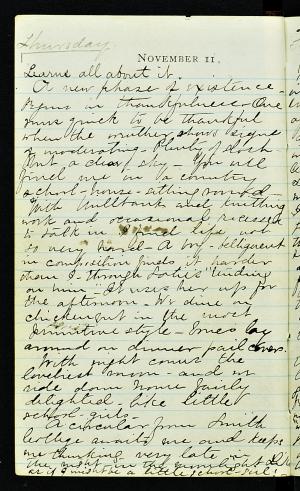 Thursday
NOVEMBER 11.
Learns all about it.
A new phase of existence
Begins in thankfulness - One
quick to be thankful
when the weather shows signs
of moderating - Plenty of
but a clear sky - You will
find me in a country
school-house - sitting round
with and knitting
work and occasional recesses
to talk in life not
so very novel - A boy - delinquent
in composition finds it harder
than I through tending
him It uses her up for
the afternoon - We dine on
chicken out in the most
primitive style - bones lay
around on dinner pail covers.
With night comes the
loveliest moon - and we
ride down home fairly
delighted - like little
school-girls -
A circular from Smith
College awaits me and keeps
me thinking very late -
the night in the moonlight
as if I might be a little school-girl